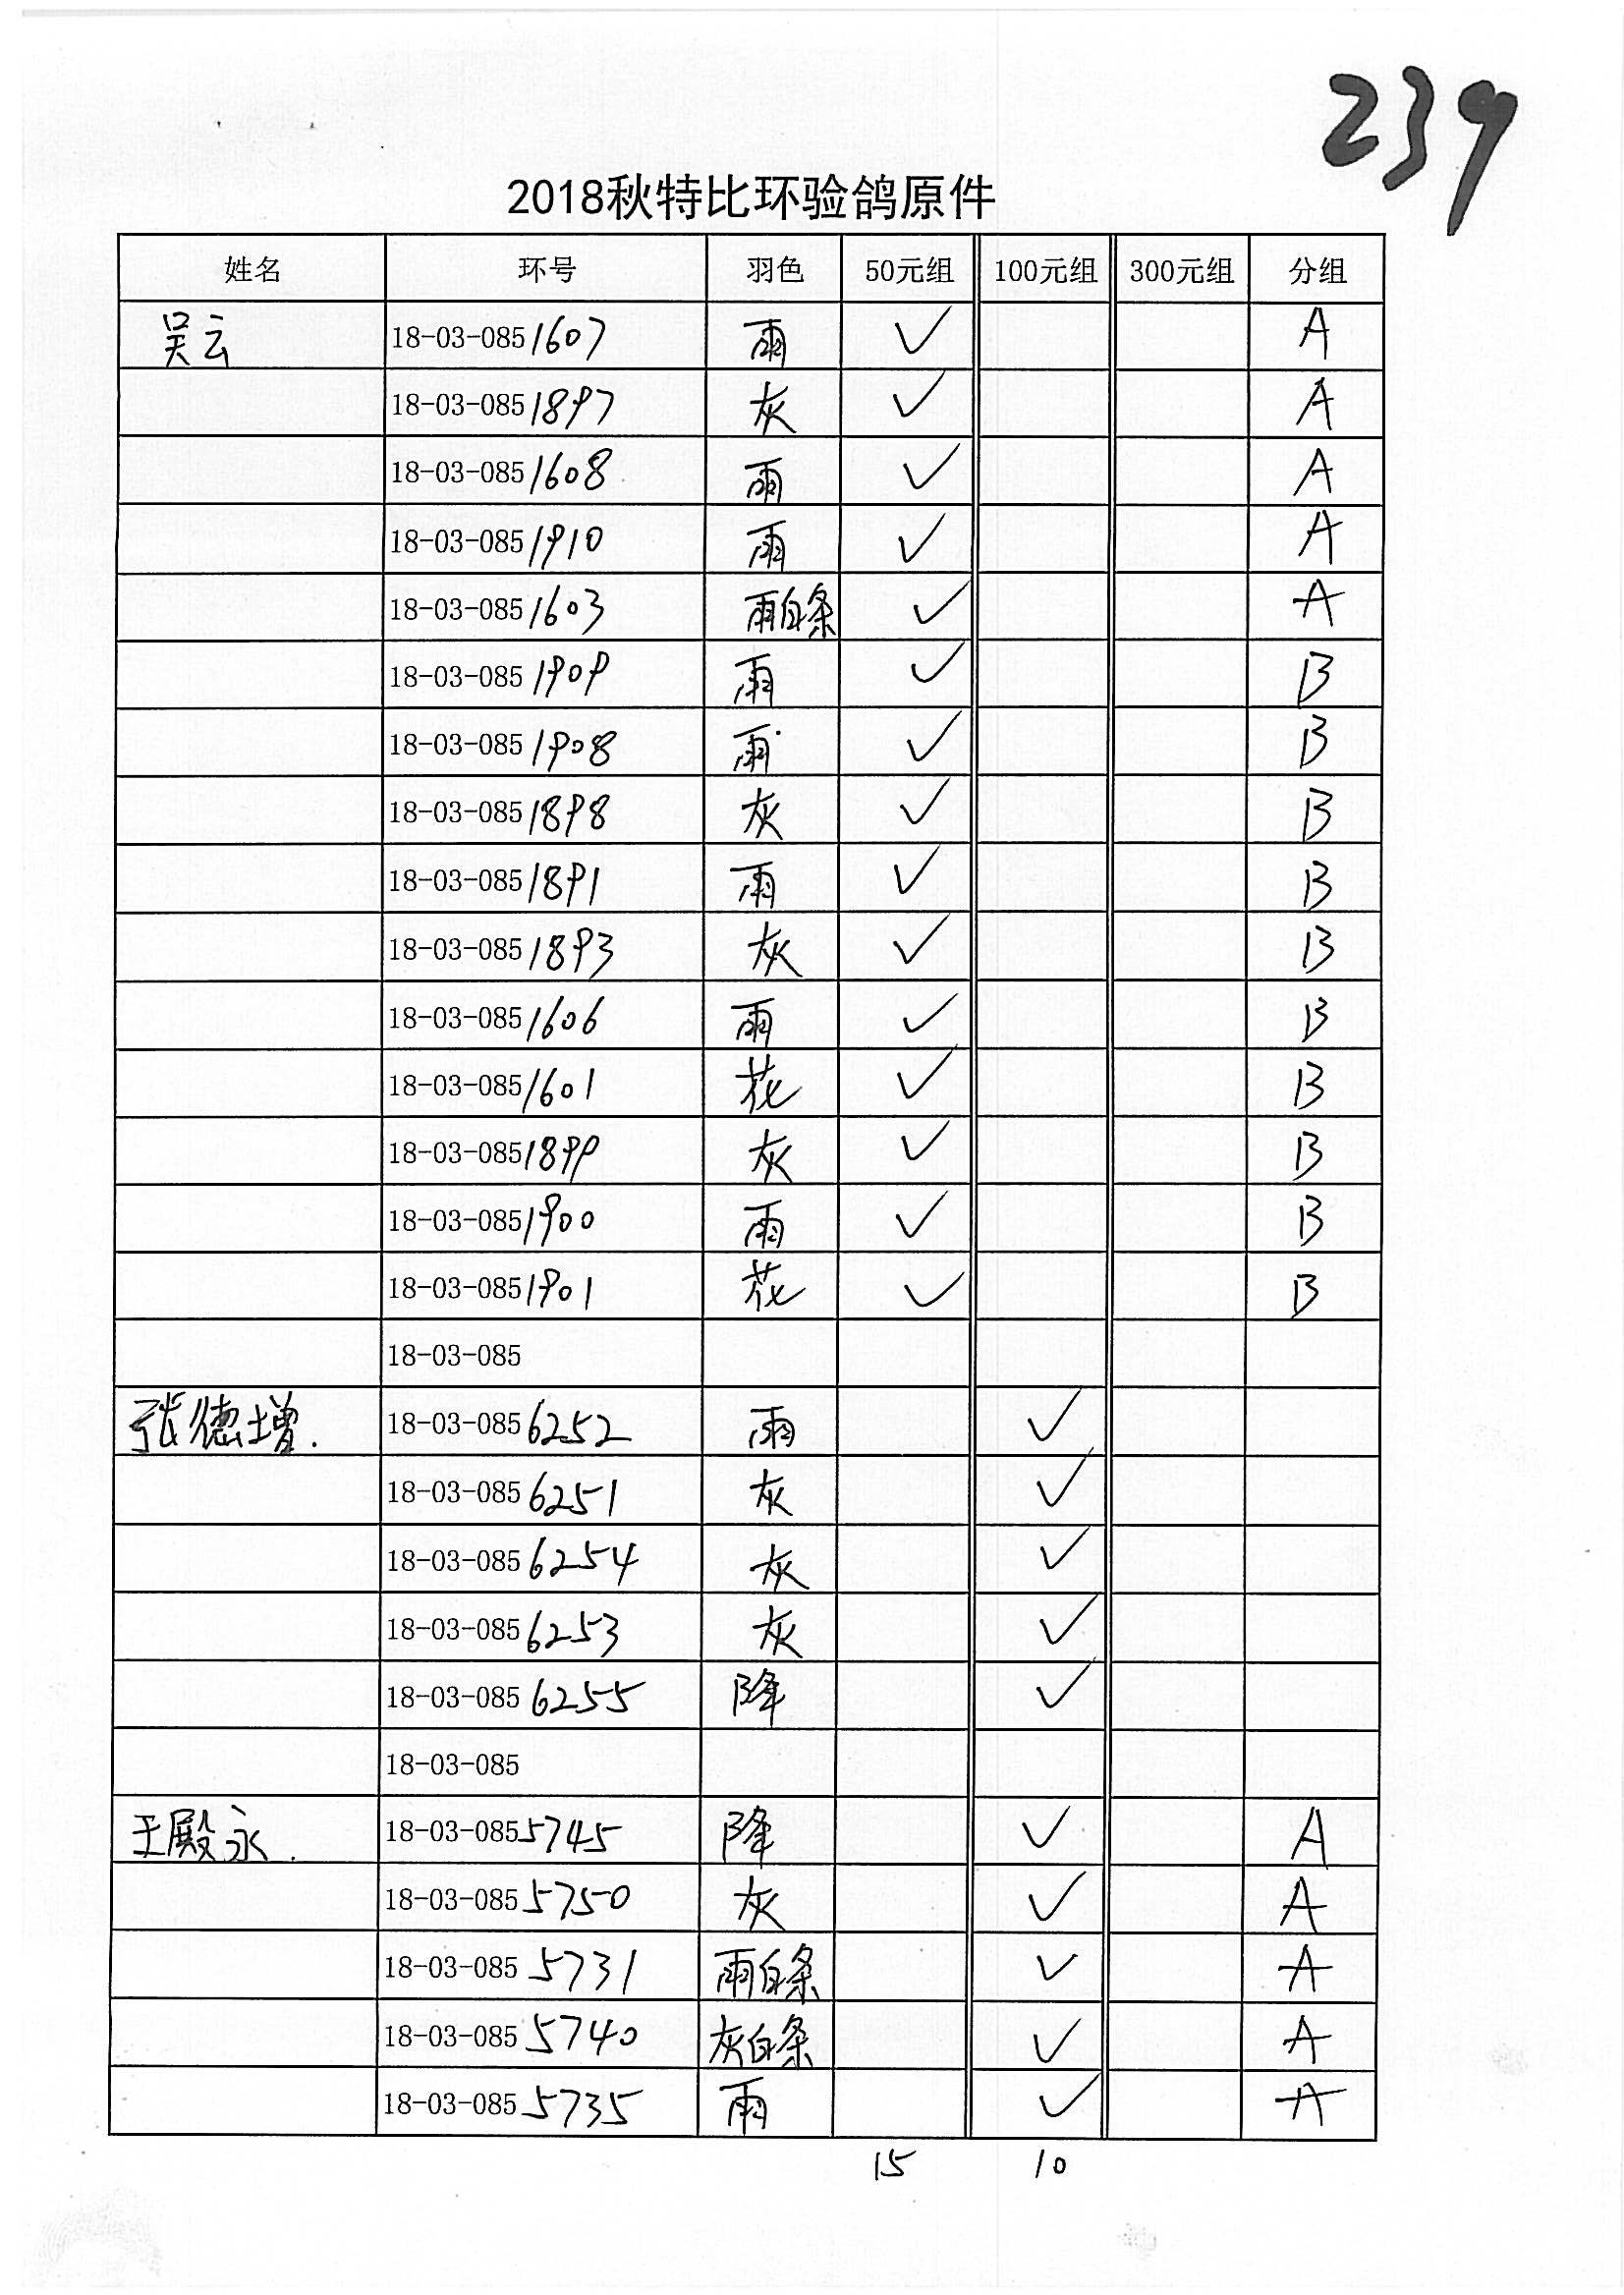 239
2018秋特比环验鸽原件
姓名 环号 羽色 50元组 100元组 300元组 分组
吴云 18-03-0851607 雨 ✓ A
18-03-0851897 灰 ✓ A
18-03-0851608 雨 ✓ A
18-03-0851910 雨 ✓ A
18-03-0851603 雨白条 ✓ A
18-03-0851909 雨 ✓ B
18-03-0851908 雨 ✓ B
18-03-0851898 灰 ✓ B
18-03-0851891 雨 ✓ B
18-03-0851893 灰 ✓ B
18-03-0851606 雨 ✓ B
18-03-0851601 花 ✓ B
18-03-0851899 灰 ✓ B
18-03-0851900 雨 ✓ B
18-03-0851901 花 ✓ B
18-03-085
张德增. 18-03-0856252 雨 ✓
18-03-0856251 灰 ✓
18-03-0856254 灰 ✓
18-03-0856253 灰 ✓
18-03-0856255 降 ✓
18-03-085
王殿永. 18-03-0855745 降 ✓ A
18-03-0855750 灰 ✓ A
18-03-0855731 雨白条 ✓ A
18-03-0855740 灰白条 ✓ A
18-03-0855735 雨 ✓ A
15 10